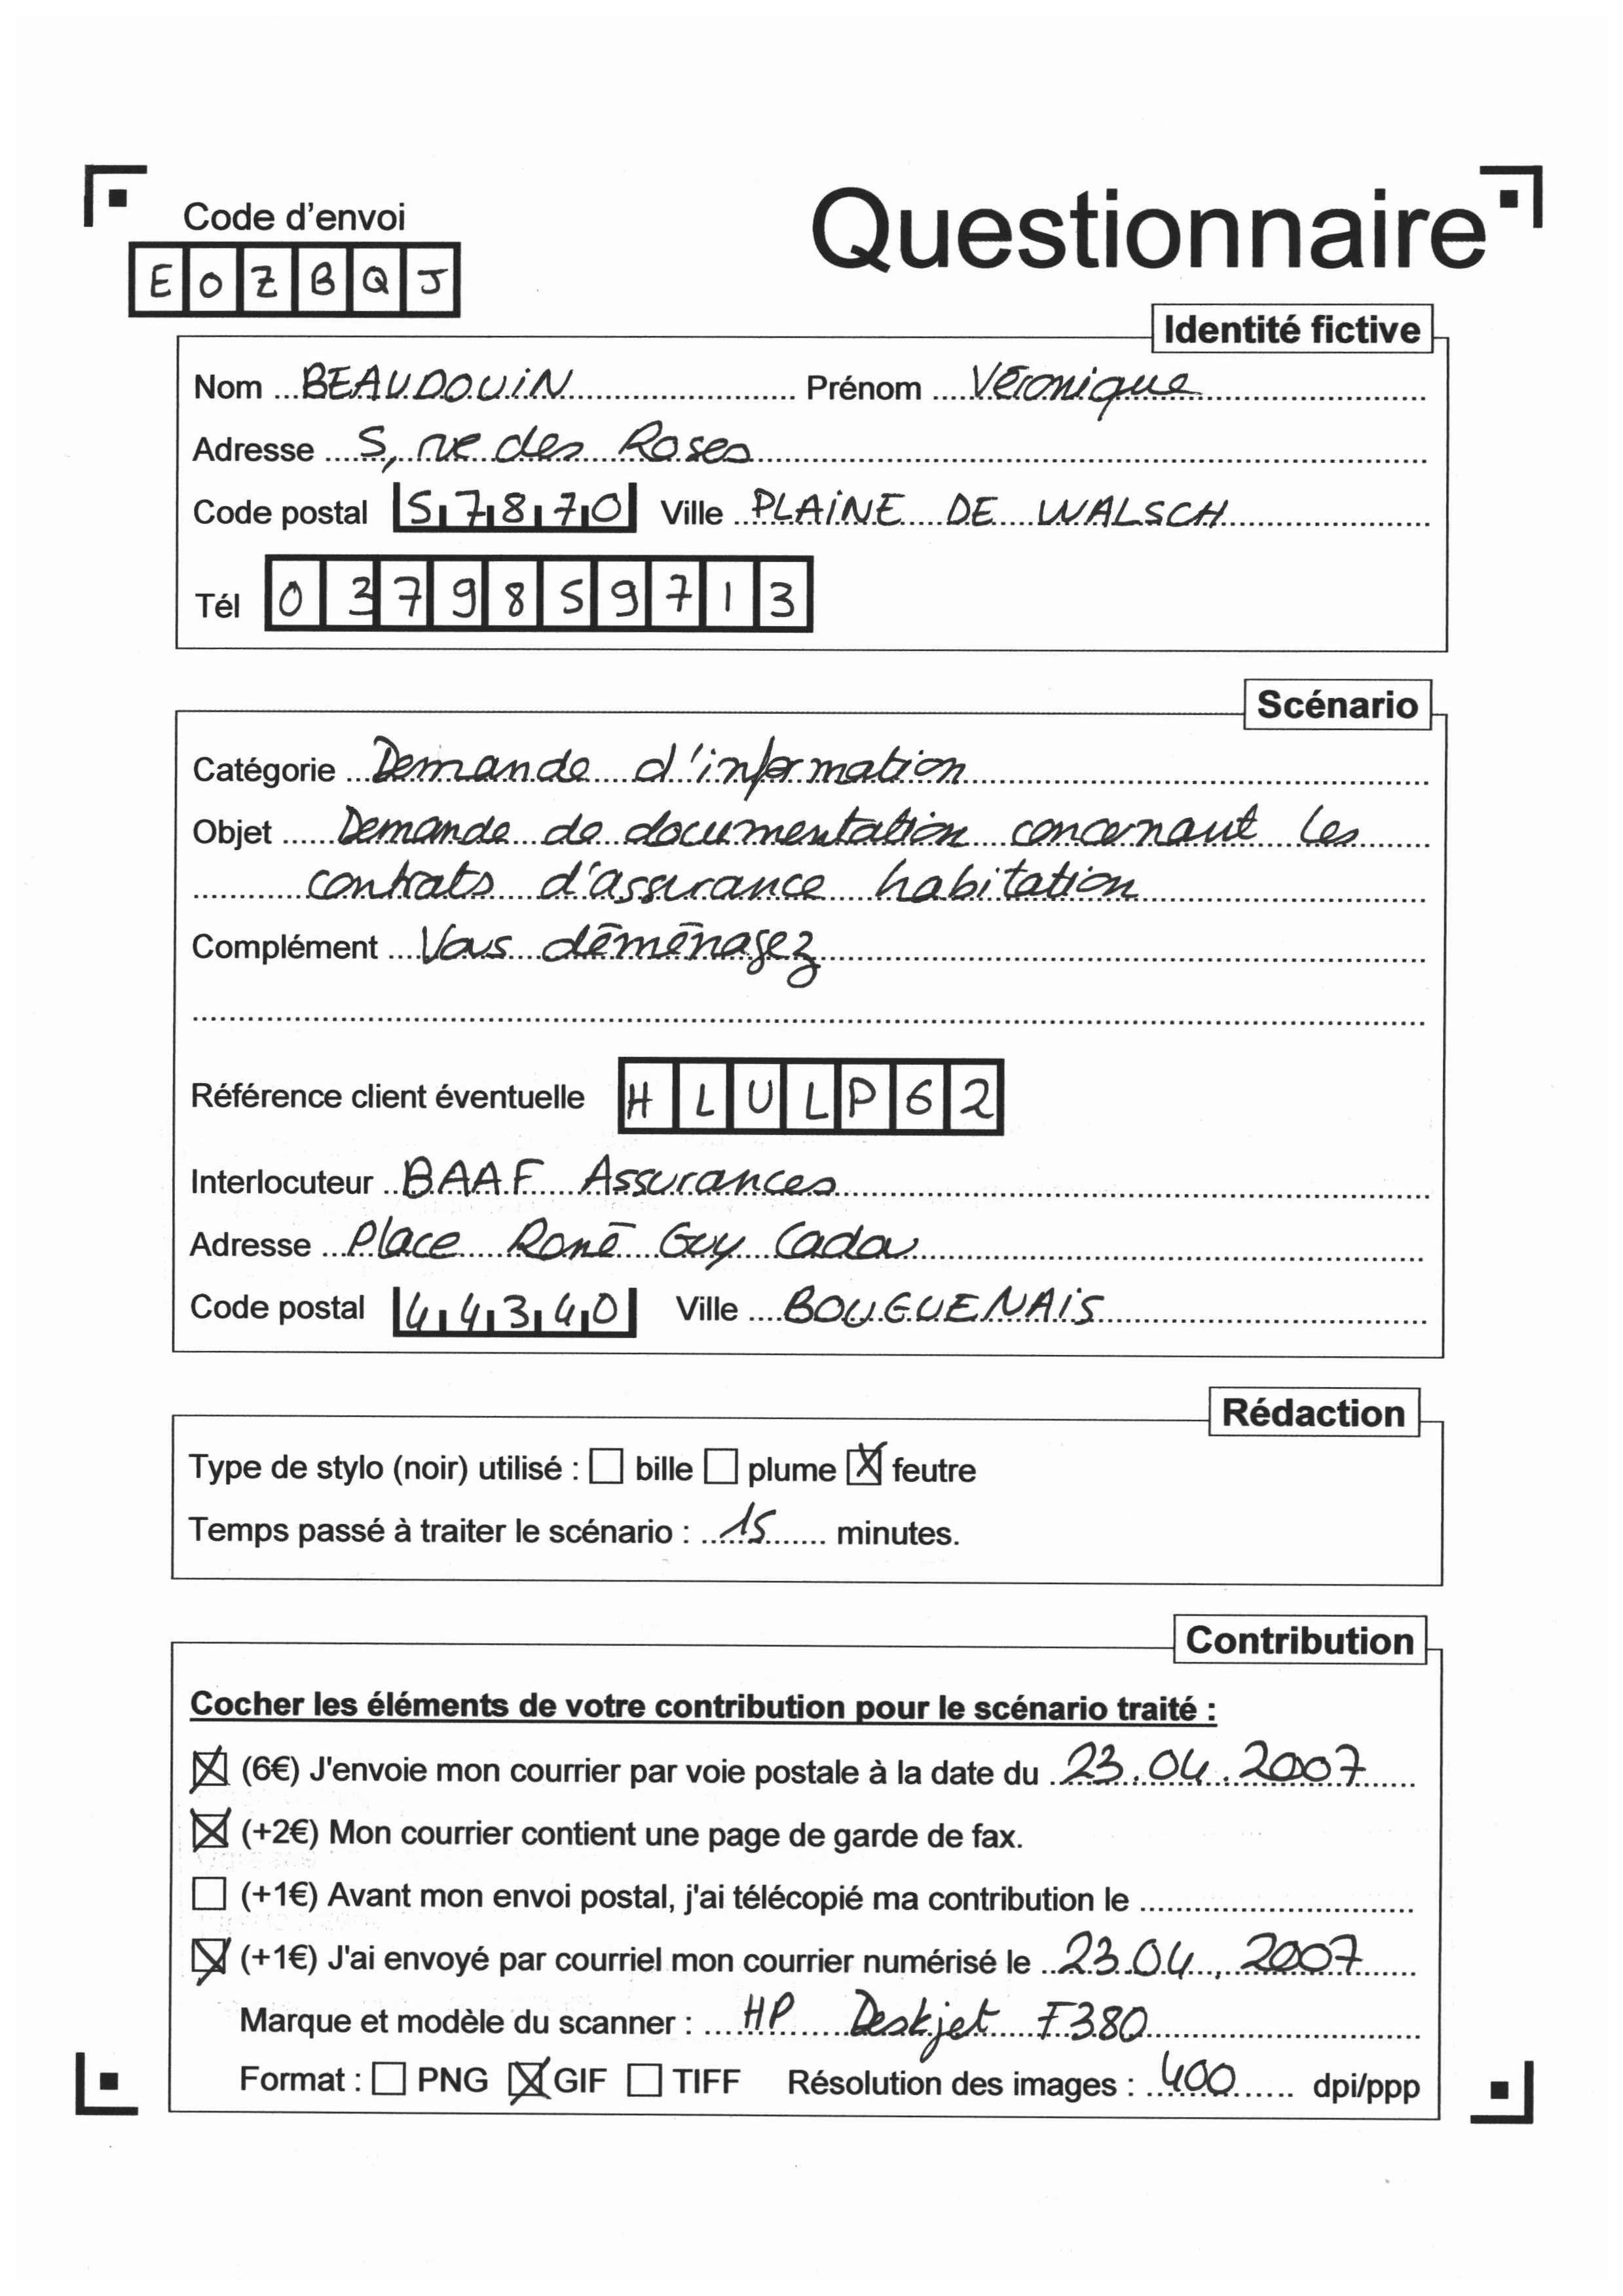 Code d'envoi
Questionnaire
E O Z B Q J
Identité fictive
Nom BEAUDOUIN Prénom Véronique
Adresse 5, rue des Roses
Code postal 57870 Ville PLAINE DE WALSCH
Tél 0379859713
Scénario
Catégorie Demande d'information
Objet Demande de documentation concernant les
contrats d'assurance habitation
Complément Vous déménagez
Référence client éventuelle HLULP62
Interlocuteur BAAF Assurances
Adresse Place René Guy Cadou
Code postal 44340 Ville BOUGUENAIS
Rédaction
Type de stylo (noir) utilisé : ☐ bille ☐ plume ☒ feutre
Temps passé à traiter le scénario : 15 minutes.
Contribution
Cocher les éléments de votre contribution pour le scénario traité :
☒ (6€) J'envoie mon courrier par voie postale à la date du 23.04.2007
☒ (+2€) Mon courrier contient une page de garde de fax.
☐ (+1€) Avant mon envoi postal, j'ai télécopié ma contribution le
☒ (+1€) J'ai envoyé par courriel mon courrier numérisé le 23.04.2007
Marque et modèle du scanner : HP Deskjet F380
Format : ☐ PNG ☒ GIF ☐ TIFF Résolution des images : 400 dpi/ppp